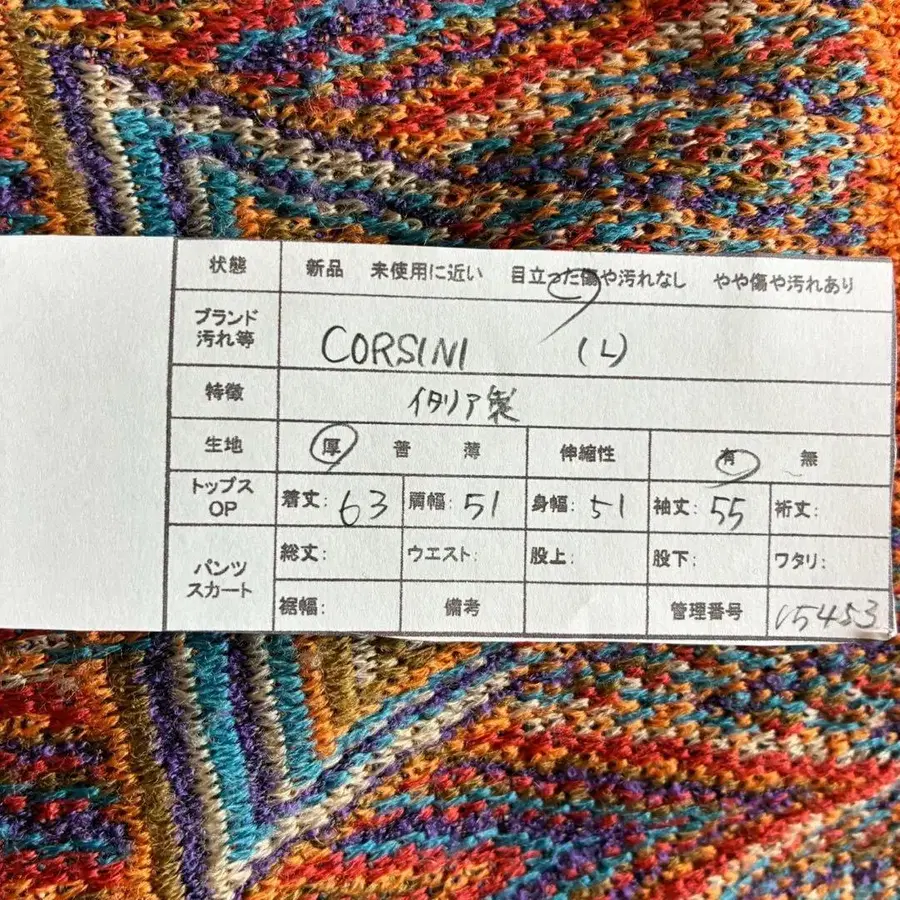 状態 新品 未使用に近い 目立った傷や汚れなし やや傷や汚れあり
ブランド
汚れ等 CORSINI (L)
特徴 イタリア製
生地 厚 普 薄 伸縮性 有 無
トップス
OP 着丈: 63 肩幅: 51 身幅: 51 袖丈: 55 裄丈:
パンツ
スカート 総丈: ウエスト: 股上: 股下: ワタリ:
裾幅: 備考 管理番号 V5453